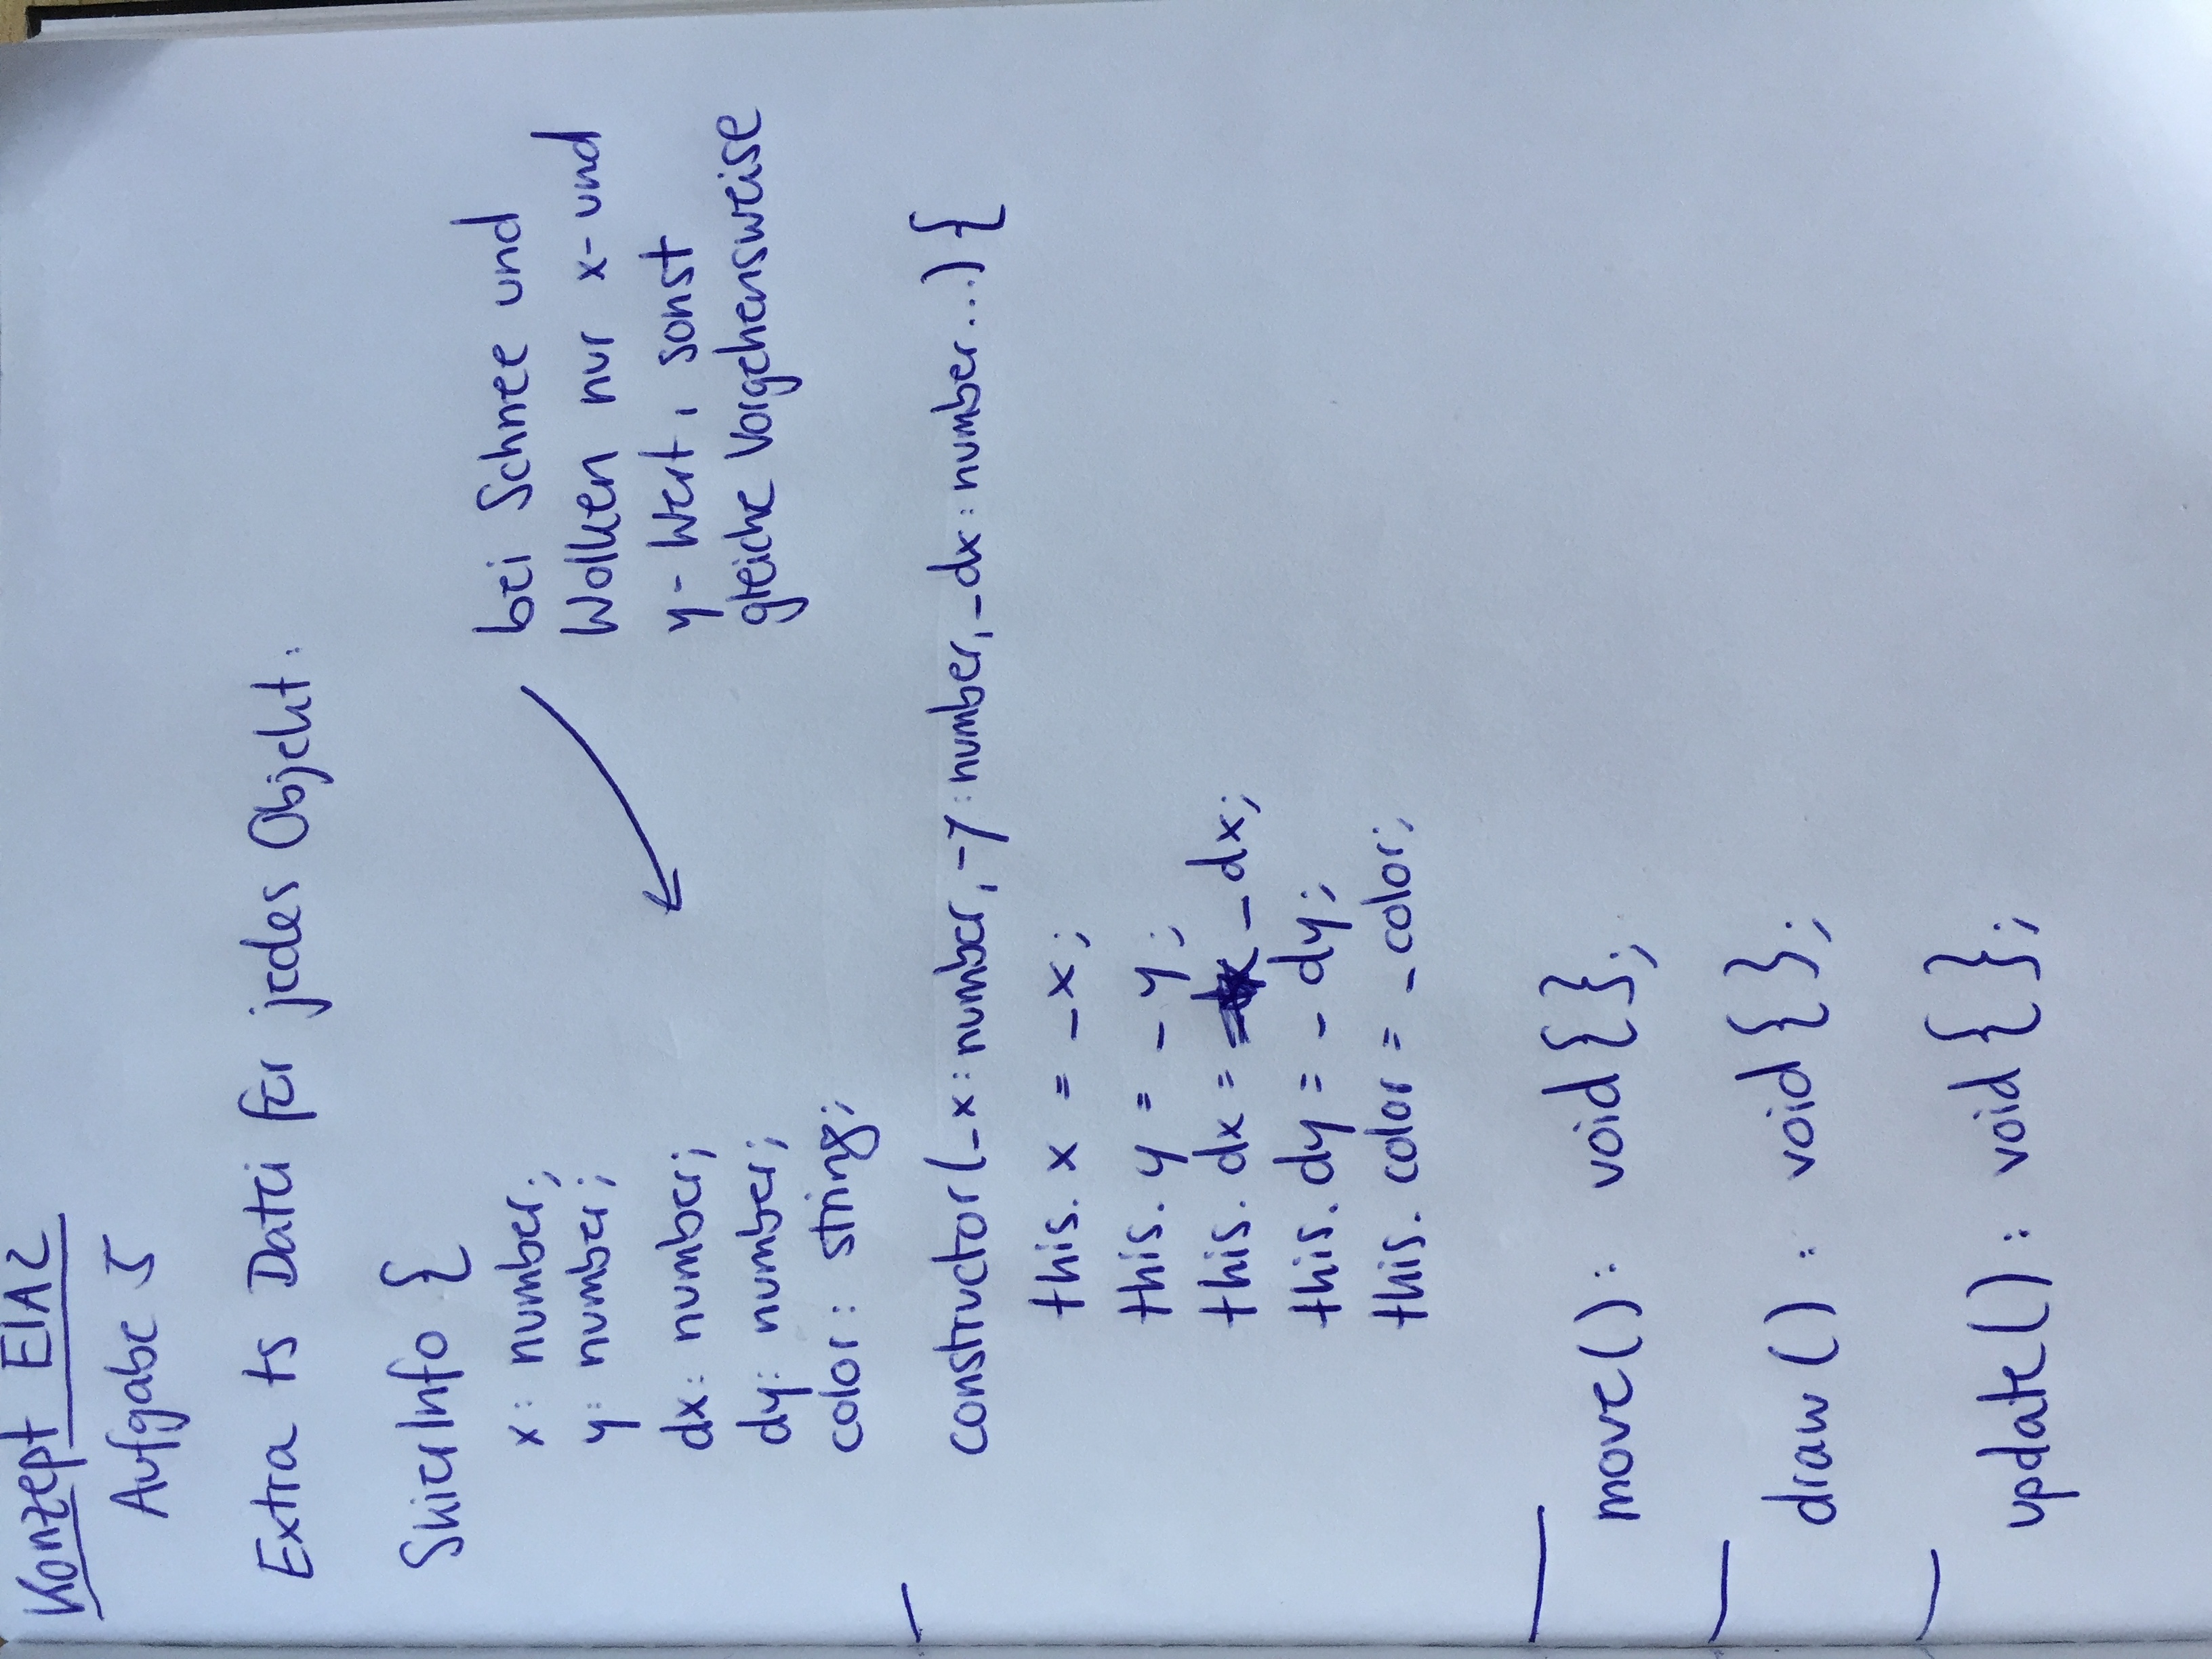 Konzept EIA2
Aufgabe 5
Extra ts Datei für jedes Objekt:
SkierInfo {
x: number;
y: number;
dx: number;
dy: number;
color: string;
bei Schnee und
Wolken nur x- und
y-Wert, sonst
gleiche Vorgehensweise
constructor(_x: number, _y: number, _dx: number...) {
this. x = _x;
this. y = _y;
this. dx = _dx;
this. dy = _dy;
this. color = _color;
move(): void { };
draw(): void { };
update(): void { };